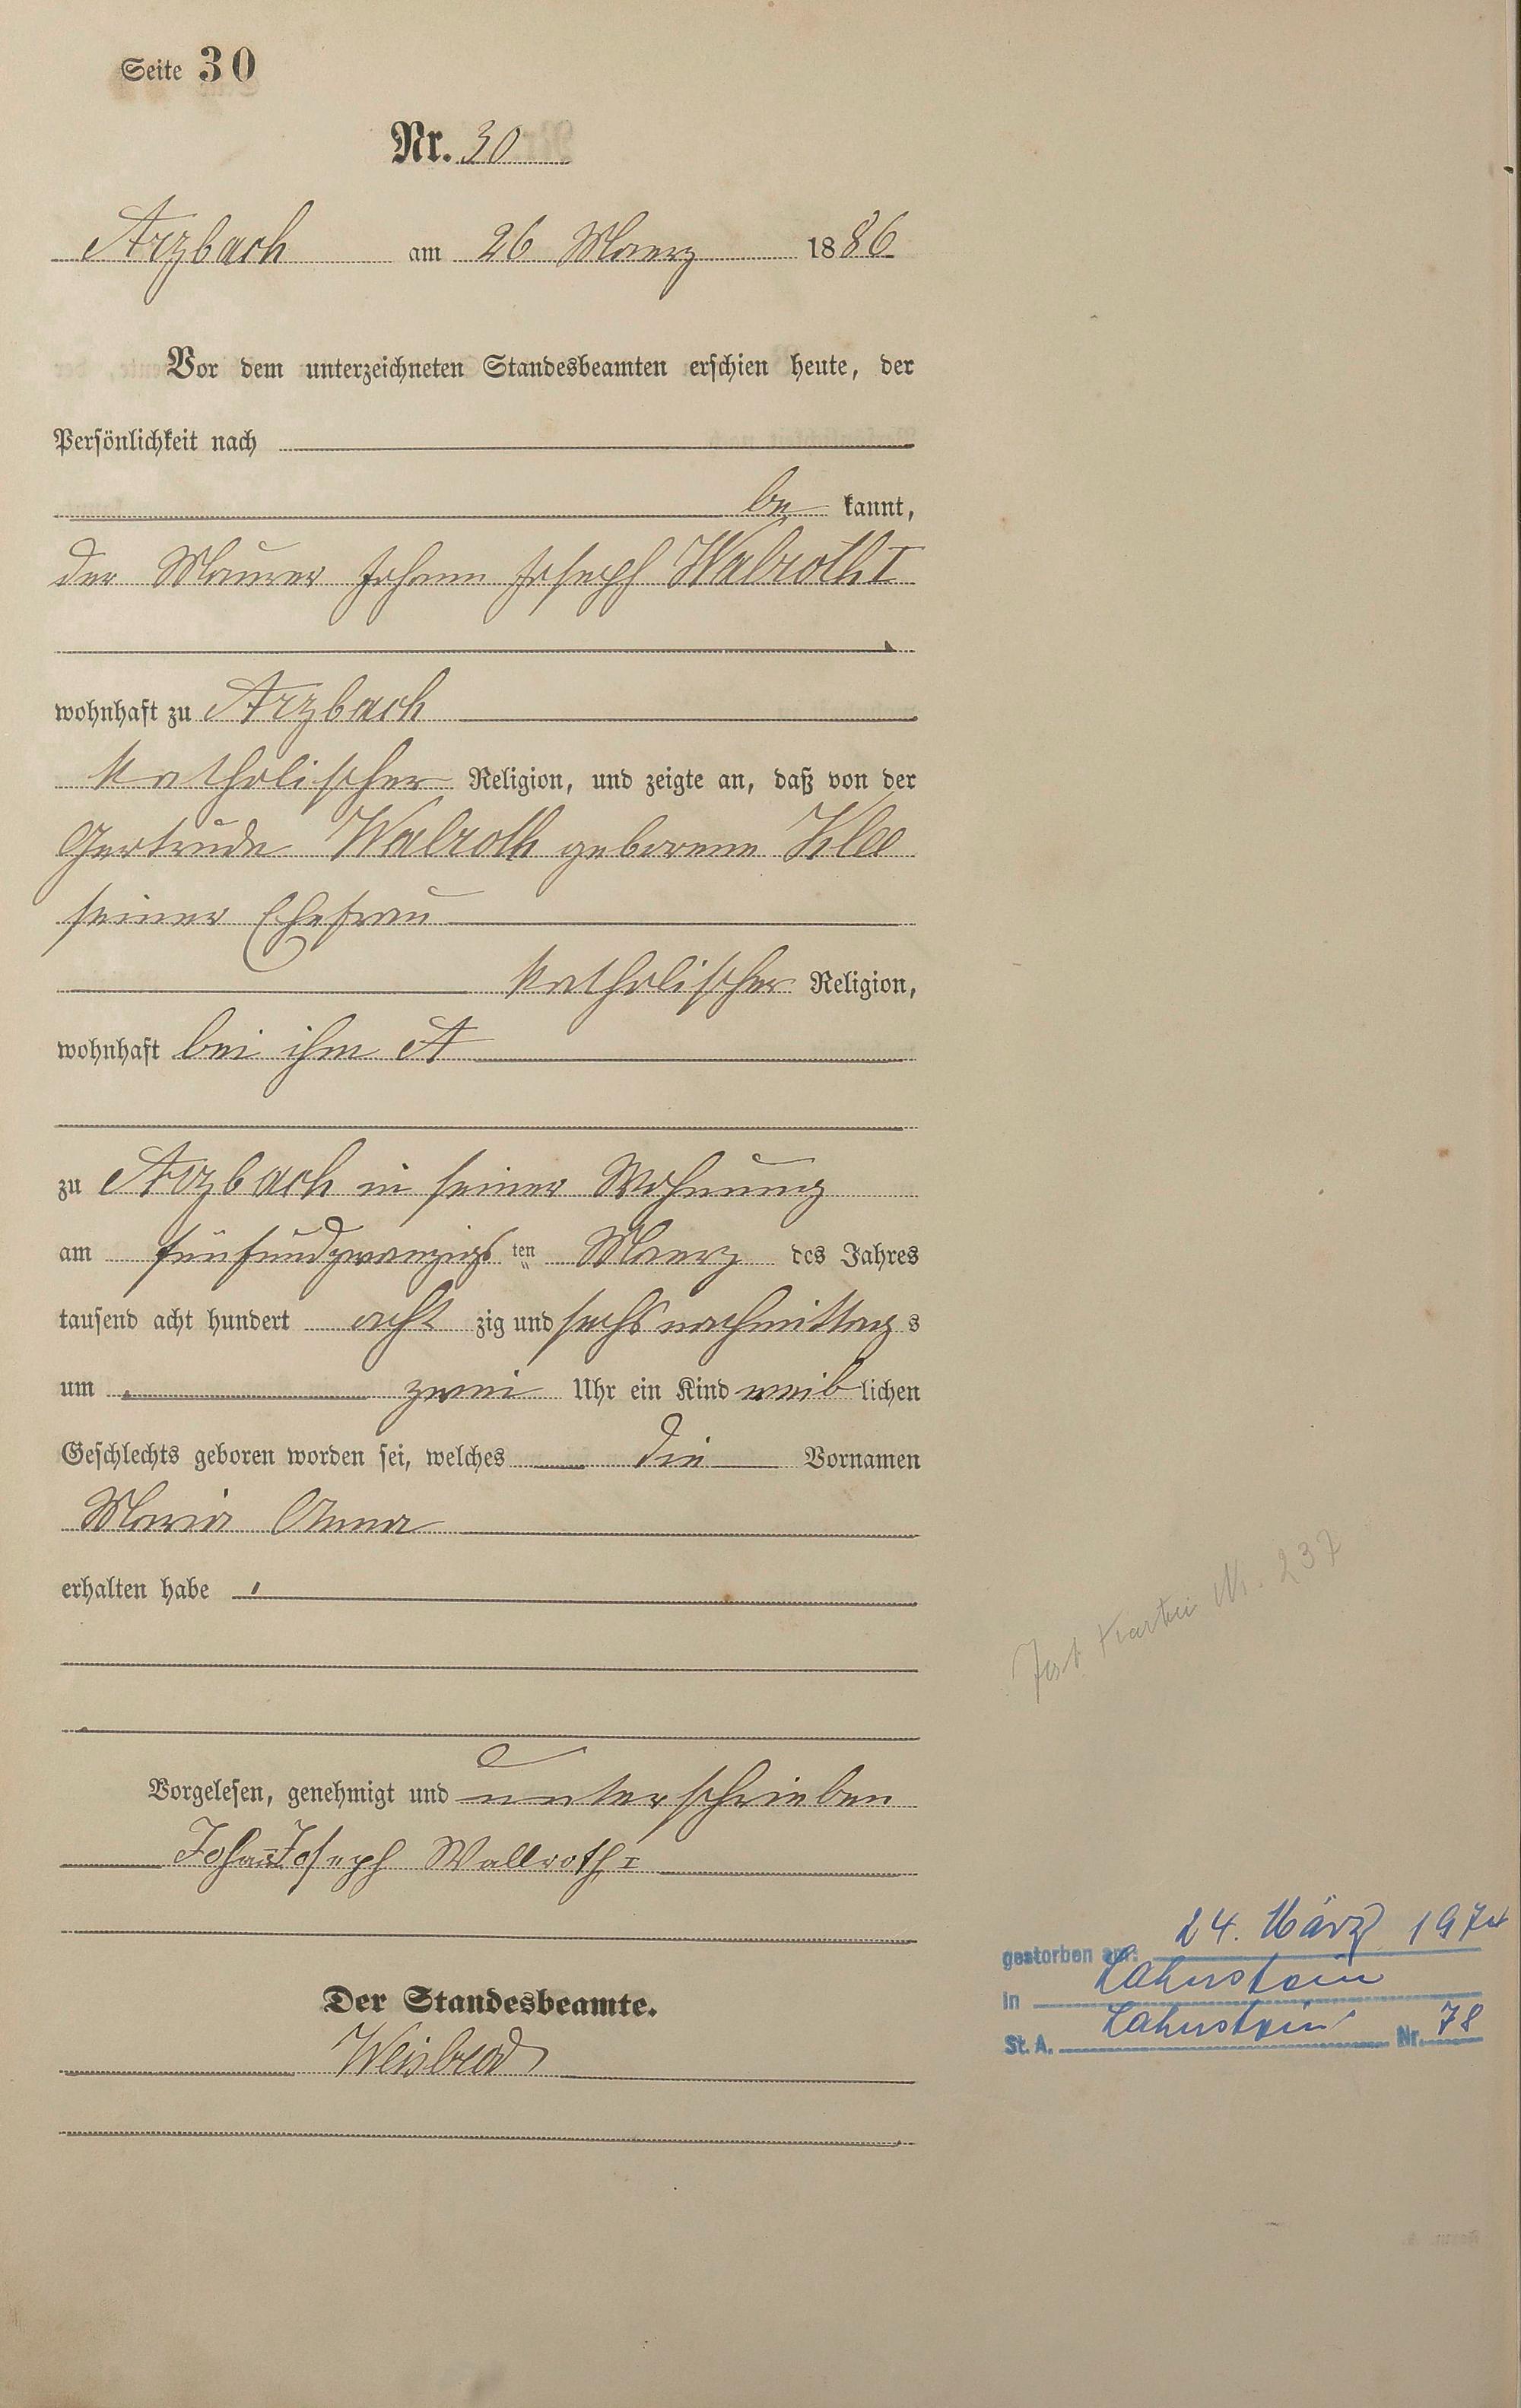 Seite 30
Nr. 30
Arzbach am 26 Maerz 1886
Vor dem unterzeichneten Standesbeamten erschien heute, der
Persönlichkeit nach
be kannt,
der Maurer Johann Joseph Walroth I
wohnhaft zu Arzbach
katholischer Religion, und zeigte an, daß von der
Gertrude Walroth geborenen Klee
seiner Ehefrau
katholischer Religion,
wohnhaft bei ihm A
zu Arzbach in seiner Wohnung
am fünfundzwanzigsten Maerz des Jahres
tausend acht hundert acht zig und sechs nachmittags
um zwei Uhr ein Kind weiblichen
Geschlechts geboren worden sei, welches die Vornamen
Maria Anna
erhalten habe
Vorgelesen, genehmigt und unterschrieben
Johann Joseph Wallroth I
Der Standesbeamte.
Weisbrod
Kartei Nr. 237
gestorben am: 24. März 1974
in Lahnstein
St. A. Lahnstein Nr. 78